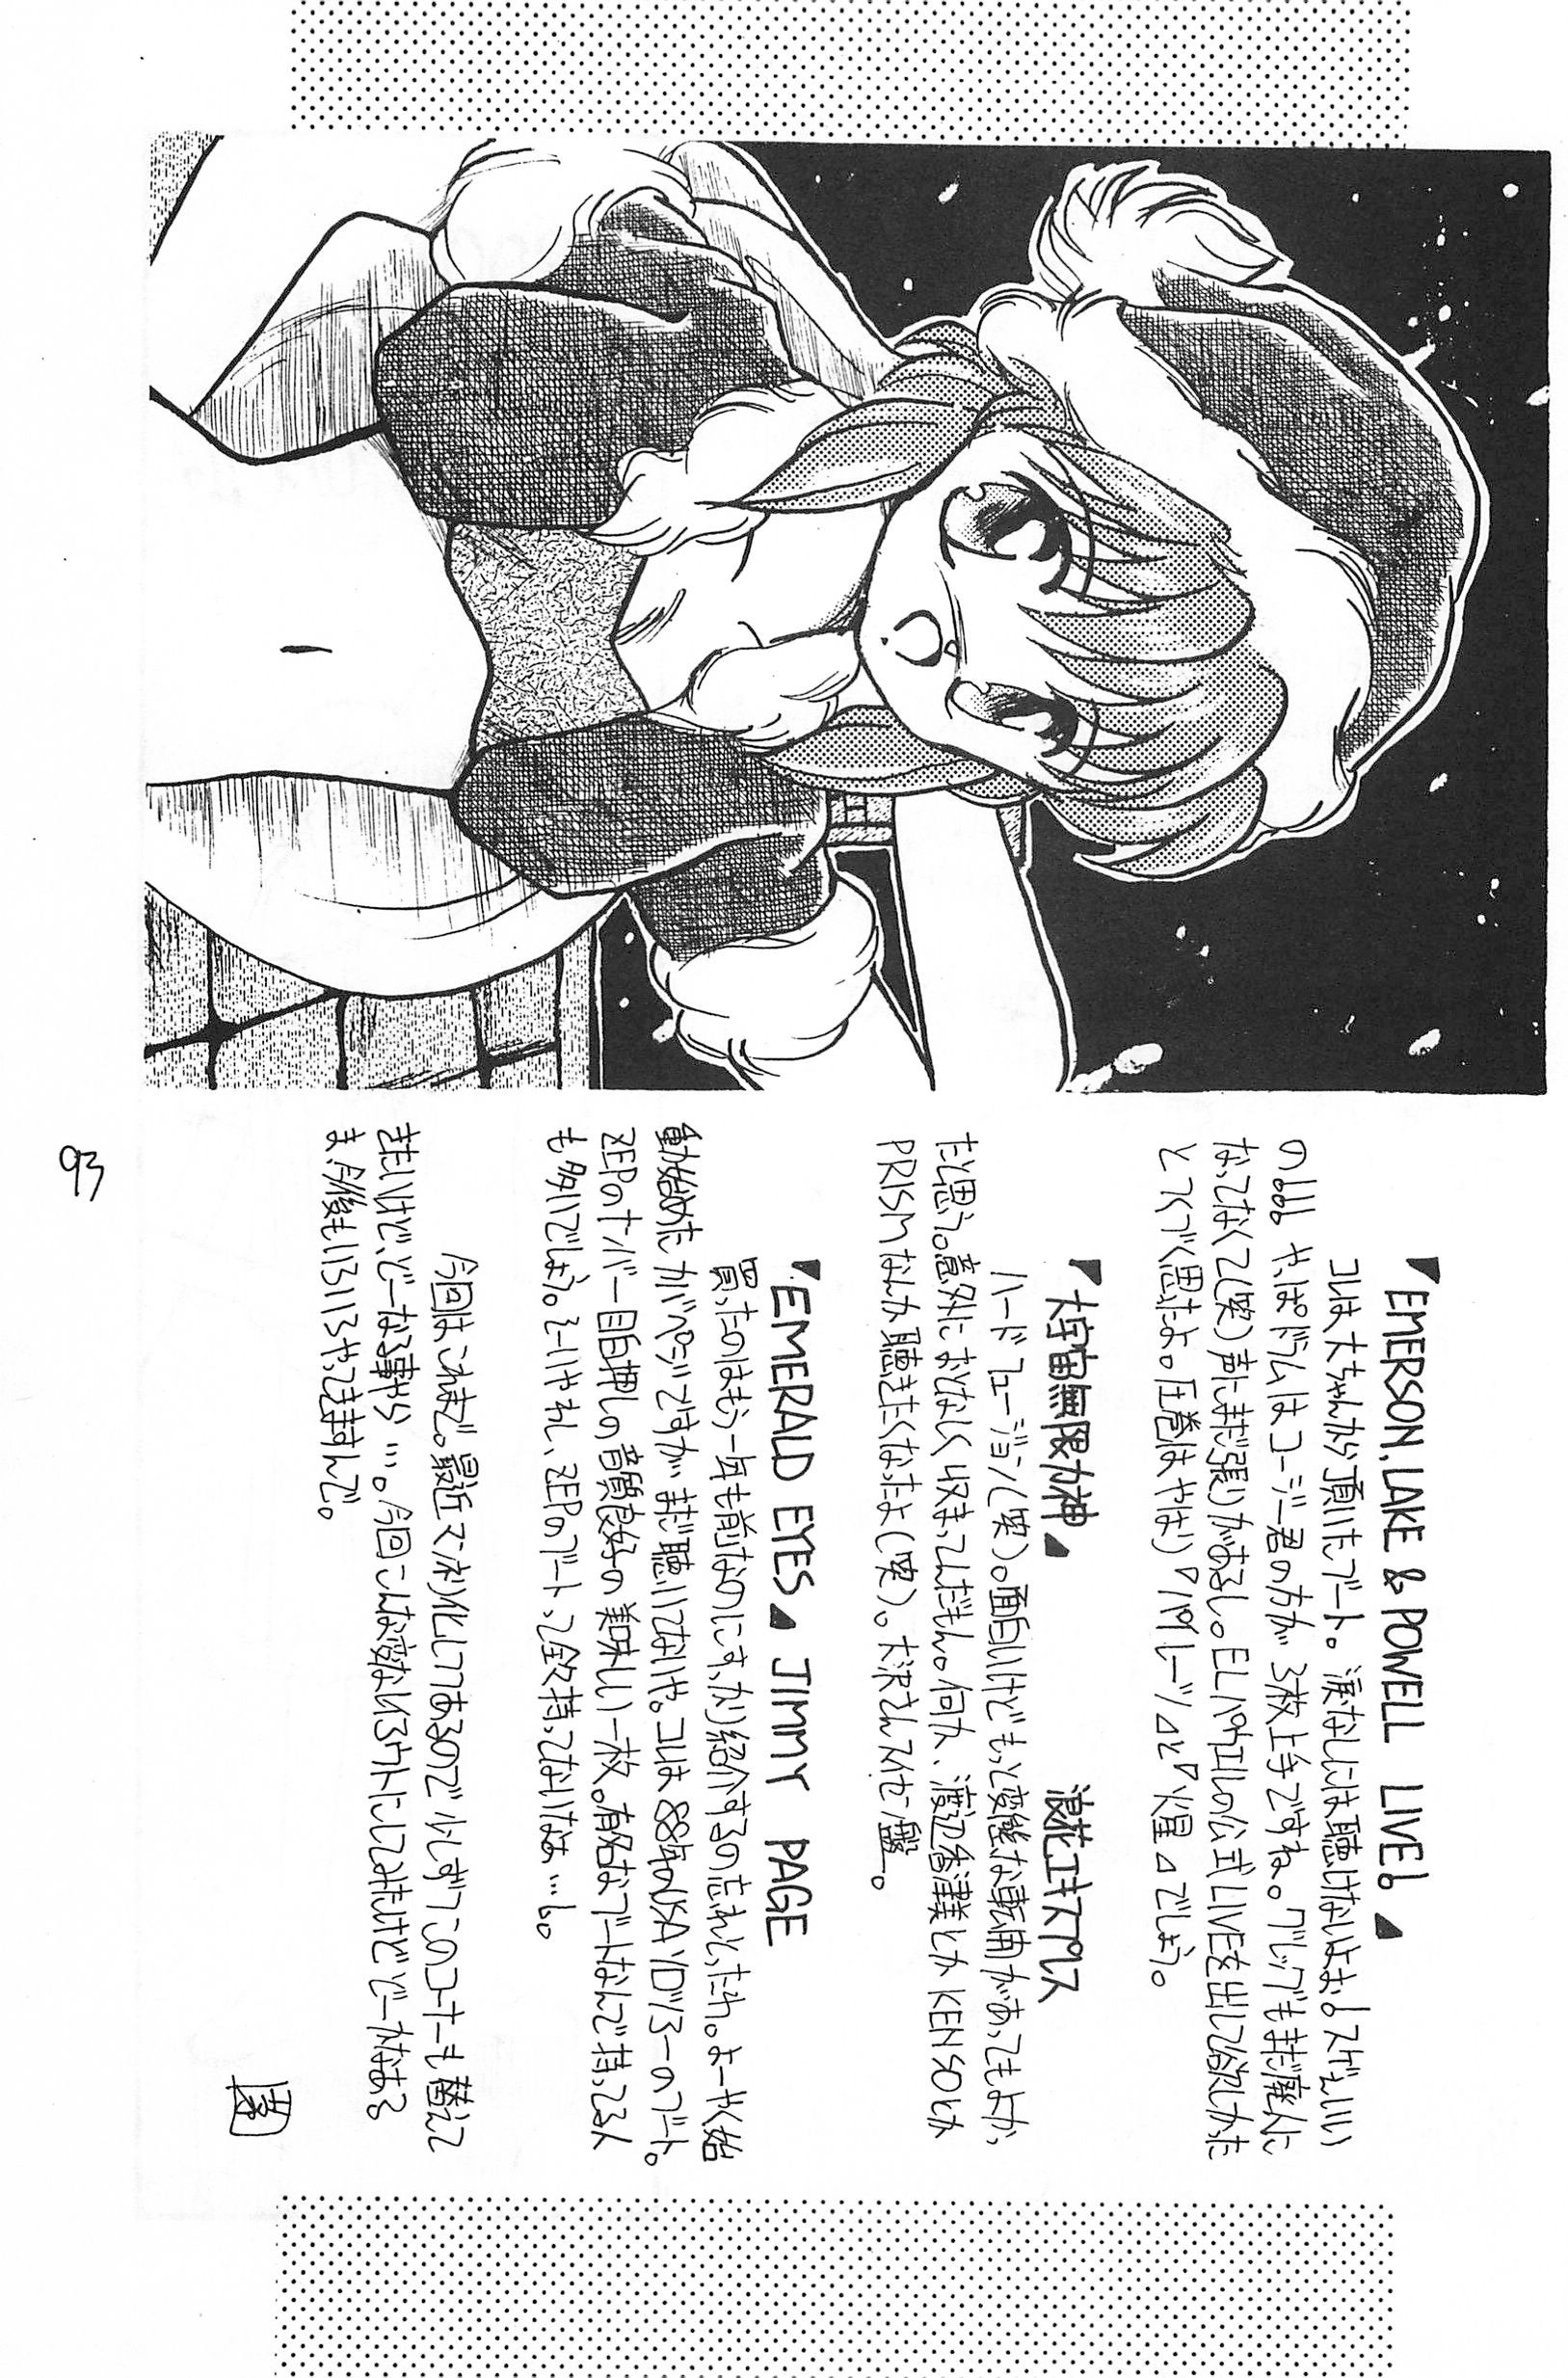 『EMERSON, LAKE & POWELL LIVE!』
コレは大ちゃんから頂いたブート。涙なしには聴けないよぉ!スゲェいい
の!!! やっぱドラムはコージー君の方が3枚上手ですね。グレッグもまだ廃人に
なってなくて(笑)声にまだ張りがあるし。ELパウエルの公式LIVEを出して欲しかった
とつくづく思ったよ。圧巻はやはり『パイレーツ』と『火星』でしょう。
『大宇宙無限力神』 浪花エキスプレス
ハードフュージョン(笑)。面白いけどもっと変態な展開があってもよかっ
たと思う。意外におとなしく収まってんだもん。何か、渡辺香津美とか KENSOとか
PRISMなんか聴きたくなったよ(笑)。大沢さんスイセン盤。
『EMERALD EYES』 JIMMY PAGE
買ったのはもう一年も前なのにすっかり紹介するの忘れとったわ。よーやく始
動始めたカバペジですがまだ聴いてないや。コレは88年のUSAソロツアーのブート。
ZEPのナンバー目白押しの音質良好の美味しい一枚。有名なブートなんで持ってる人
も多いでしょう。そーいやオレ、ZEPのブートって全然持ってないなぁ…。
今回はこれまで。最近マンネリ化してあるので少しずつこのコーナーも替えて
きたいけど、どーなる事やら…。今回こんな変なレイアウトにしてみたけどどーかなぁ
ま、今後もいろいろやってきますんで。
93